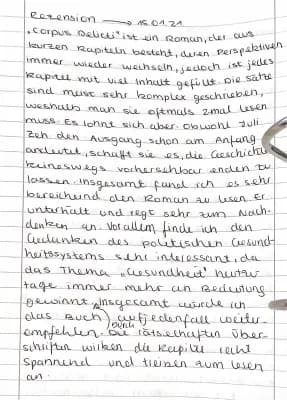 Rezension → 15.01.21
"Corpus Delicti" ist ein Roman, der aus
kurzen Kapiteln besteht, deren Perspektiven
immer wieder wechseln, jedoch ist jedes
Kapitel mit viel Inhalt gefüllt. Die Sätze
sind meist sehr komplex geschrieben,
weshalb man sie oftmals 2mal lesen
muss. Es lohnt sich aber. Obwohl Juli
Zeh den Ausgang schon am Anfang
andeutet, schafft sie es, die Geschichte
keineswegs vorhersehbar enden zu
lassen. Insgesamt fand ich es sehr
bereichernd den Roman zu lesen. Er
unterhält und regt sehr zum Nach-
denken an. Vor allem, finde ich den
Gedanken des politischen Gesund-
heitssystems sehr interessant, da
das Thema "Gesundheit" heutzu-
tage immer mehr an Bedeutung
gewinnt. Insgesamt würde ich
das Buch aufjedenfall weiter-
empfehlen. Durch die rätselhaften Über-
schriften wirken die Kapitel recht
spannend und treiben zum lesen
an.